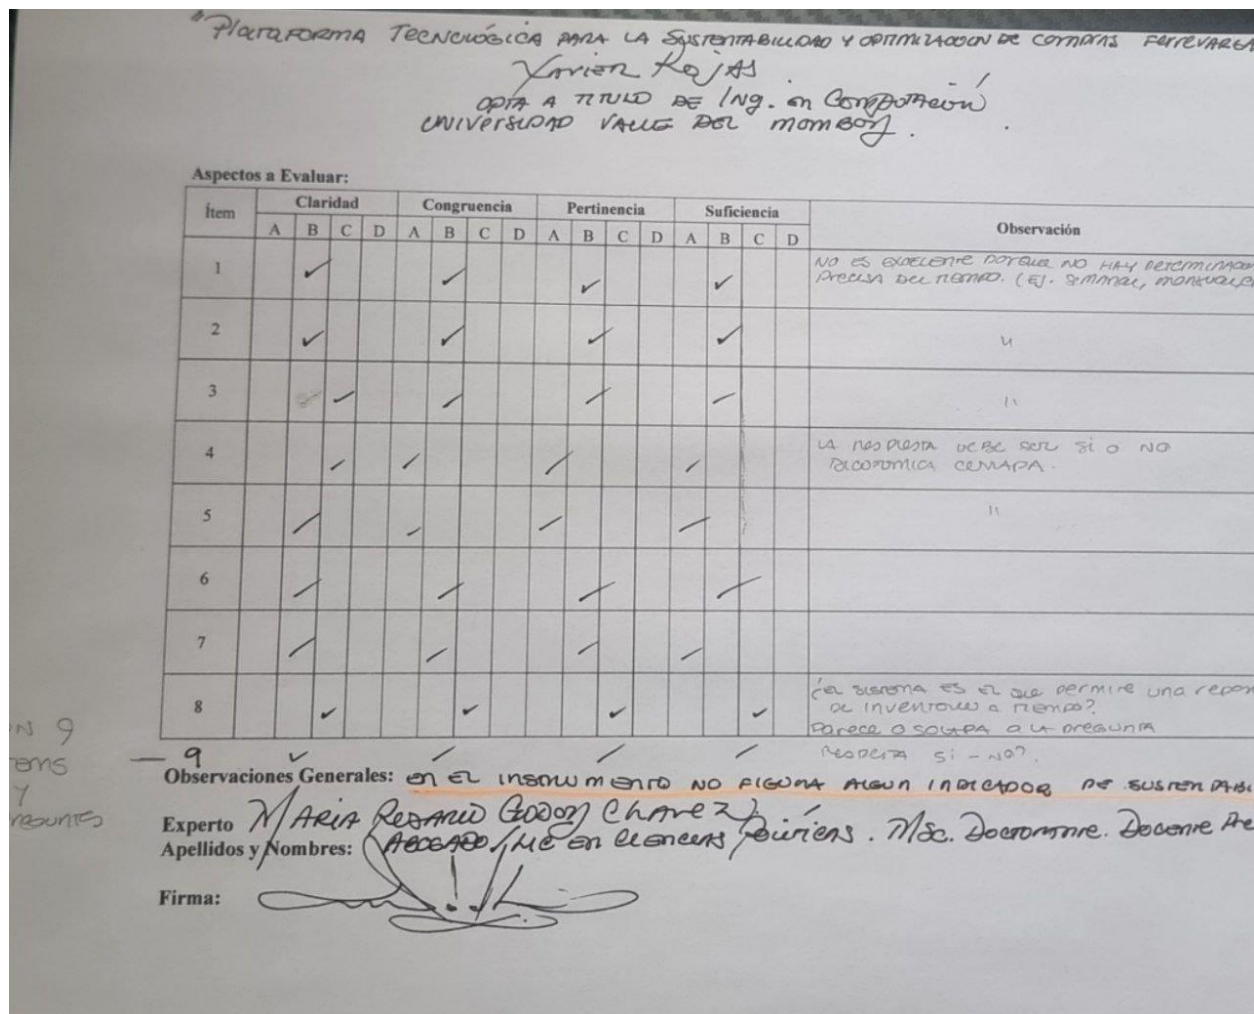 "Plataforma Tecnológica para la Sustentabilidad y optimización de compras Ferrevarga
Xavier Rojas
opta a título de Ing. en Computación
Universidad Valle del Momboy.
Aspectos a Evaluar:
Ítem Claridad Congruencia Pertinencia Suficiencia Observación
A B C D A B C D A B C D A B C D
1 ✓ ✓ ✓ ✓ No es excelente porque no hay determinacion
precisa del tiempo. (Ej. semanal, mensual
2 ✓ ✓ ✓ ✓ "
3 "
4 La respuesta debe ser si o no
Dicotomica cerrada.
5 "
6
7
8 ✓ ✓ ✓ ✓ ¿el sistema es el que permite una repor
de inventorio a tiempo?
Parece o solapa a la pregunta
— 9 ✓ Respuesta si - no?
on 9
ems
y
Observaciones Generales: en el instrumento no figura algun indicador de sustentabi
Experto Maria Rosario Godoy Chavez
Apellidos y Nombres: (Abogado / Lic en Ciencias Msc. Docente
Firma: